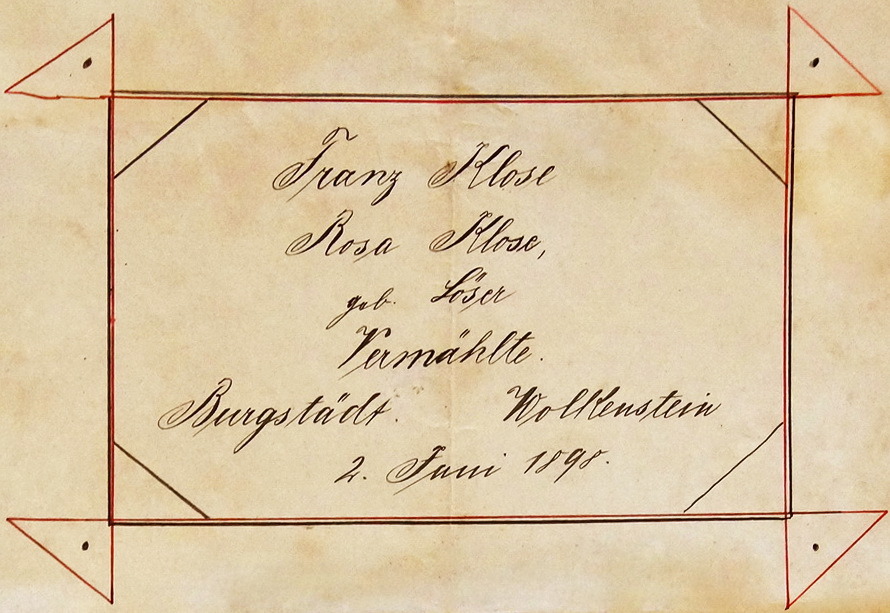 Franz Klose
Rosa Klose,
geb. Löser
Vermählte.
Burgstädt. Wolkenstein
2. Juni 1898.